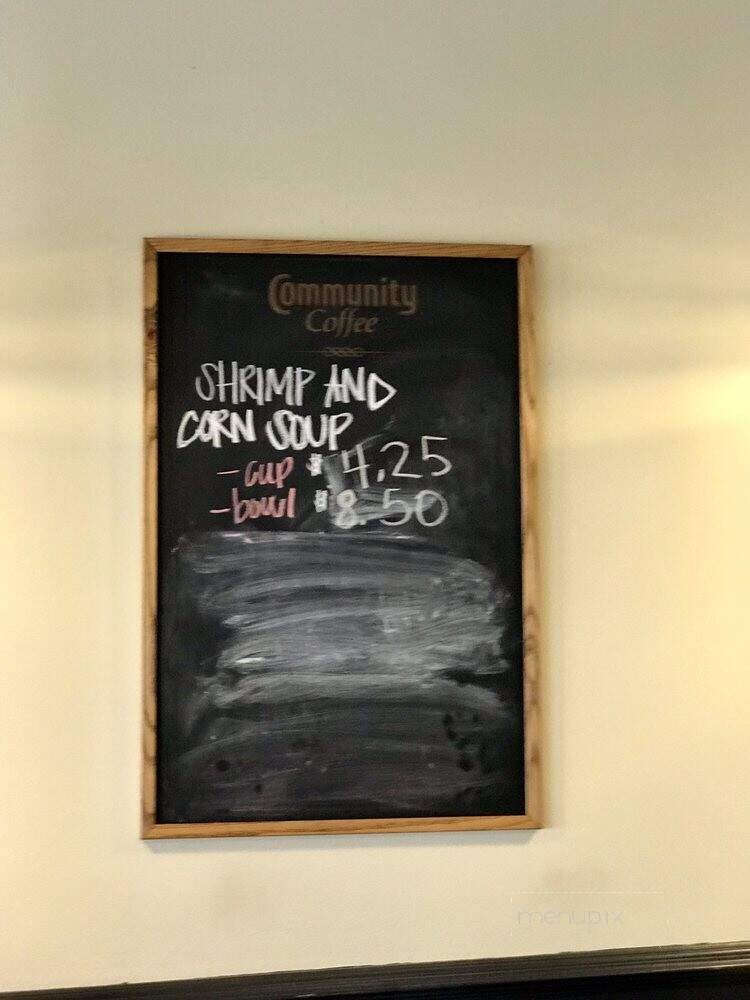 Community
Coffee
SHRIMP AND
CORN SOUP
- cup $4.25
- bowl $8.50
menupix